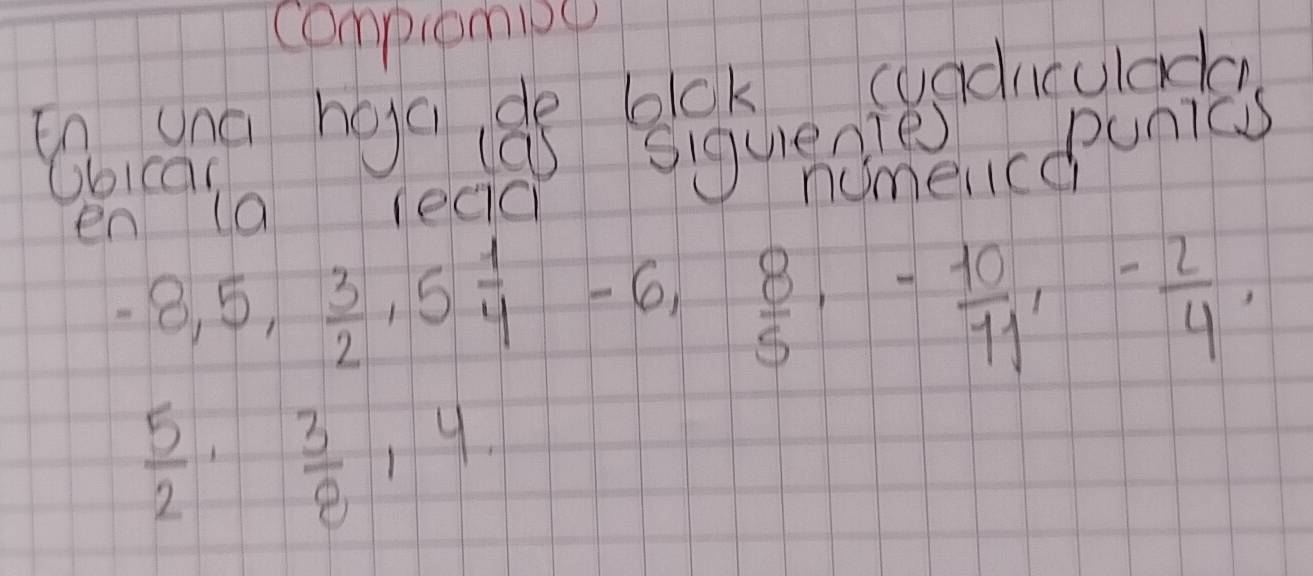 Compromiso
En una hoja de blok cuadriculada,
Ubicar las siguientes puntos
en la recta numerica
-8, 5, 3/2, 5 1/4 -6, 8/5, - 10/11, - 2/4,
5/2. 3/8, 4.